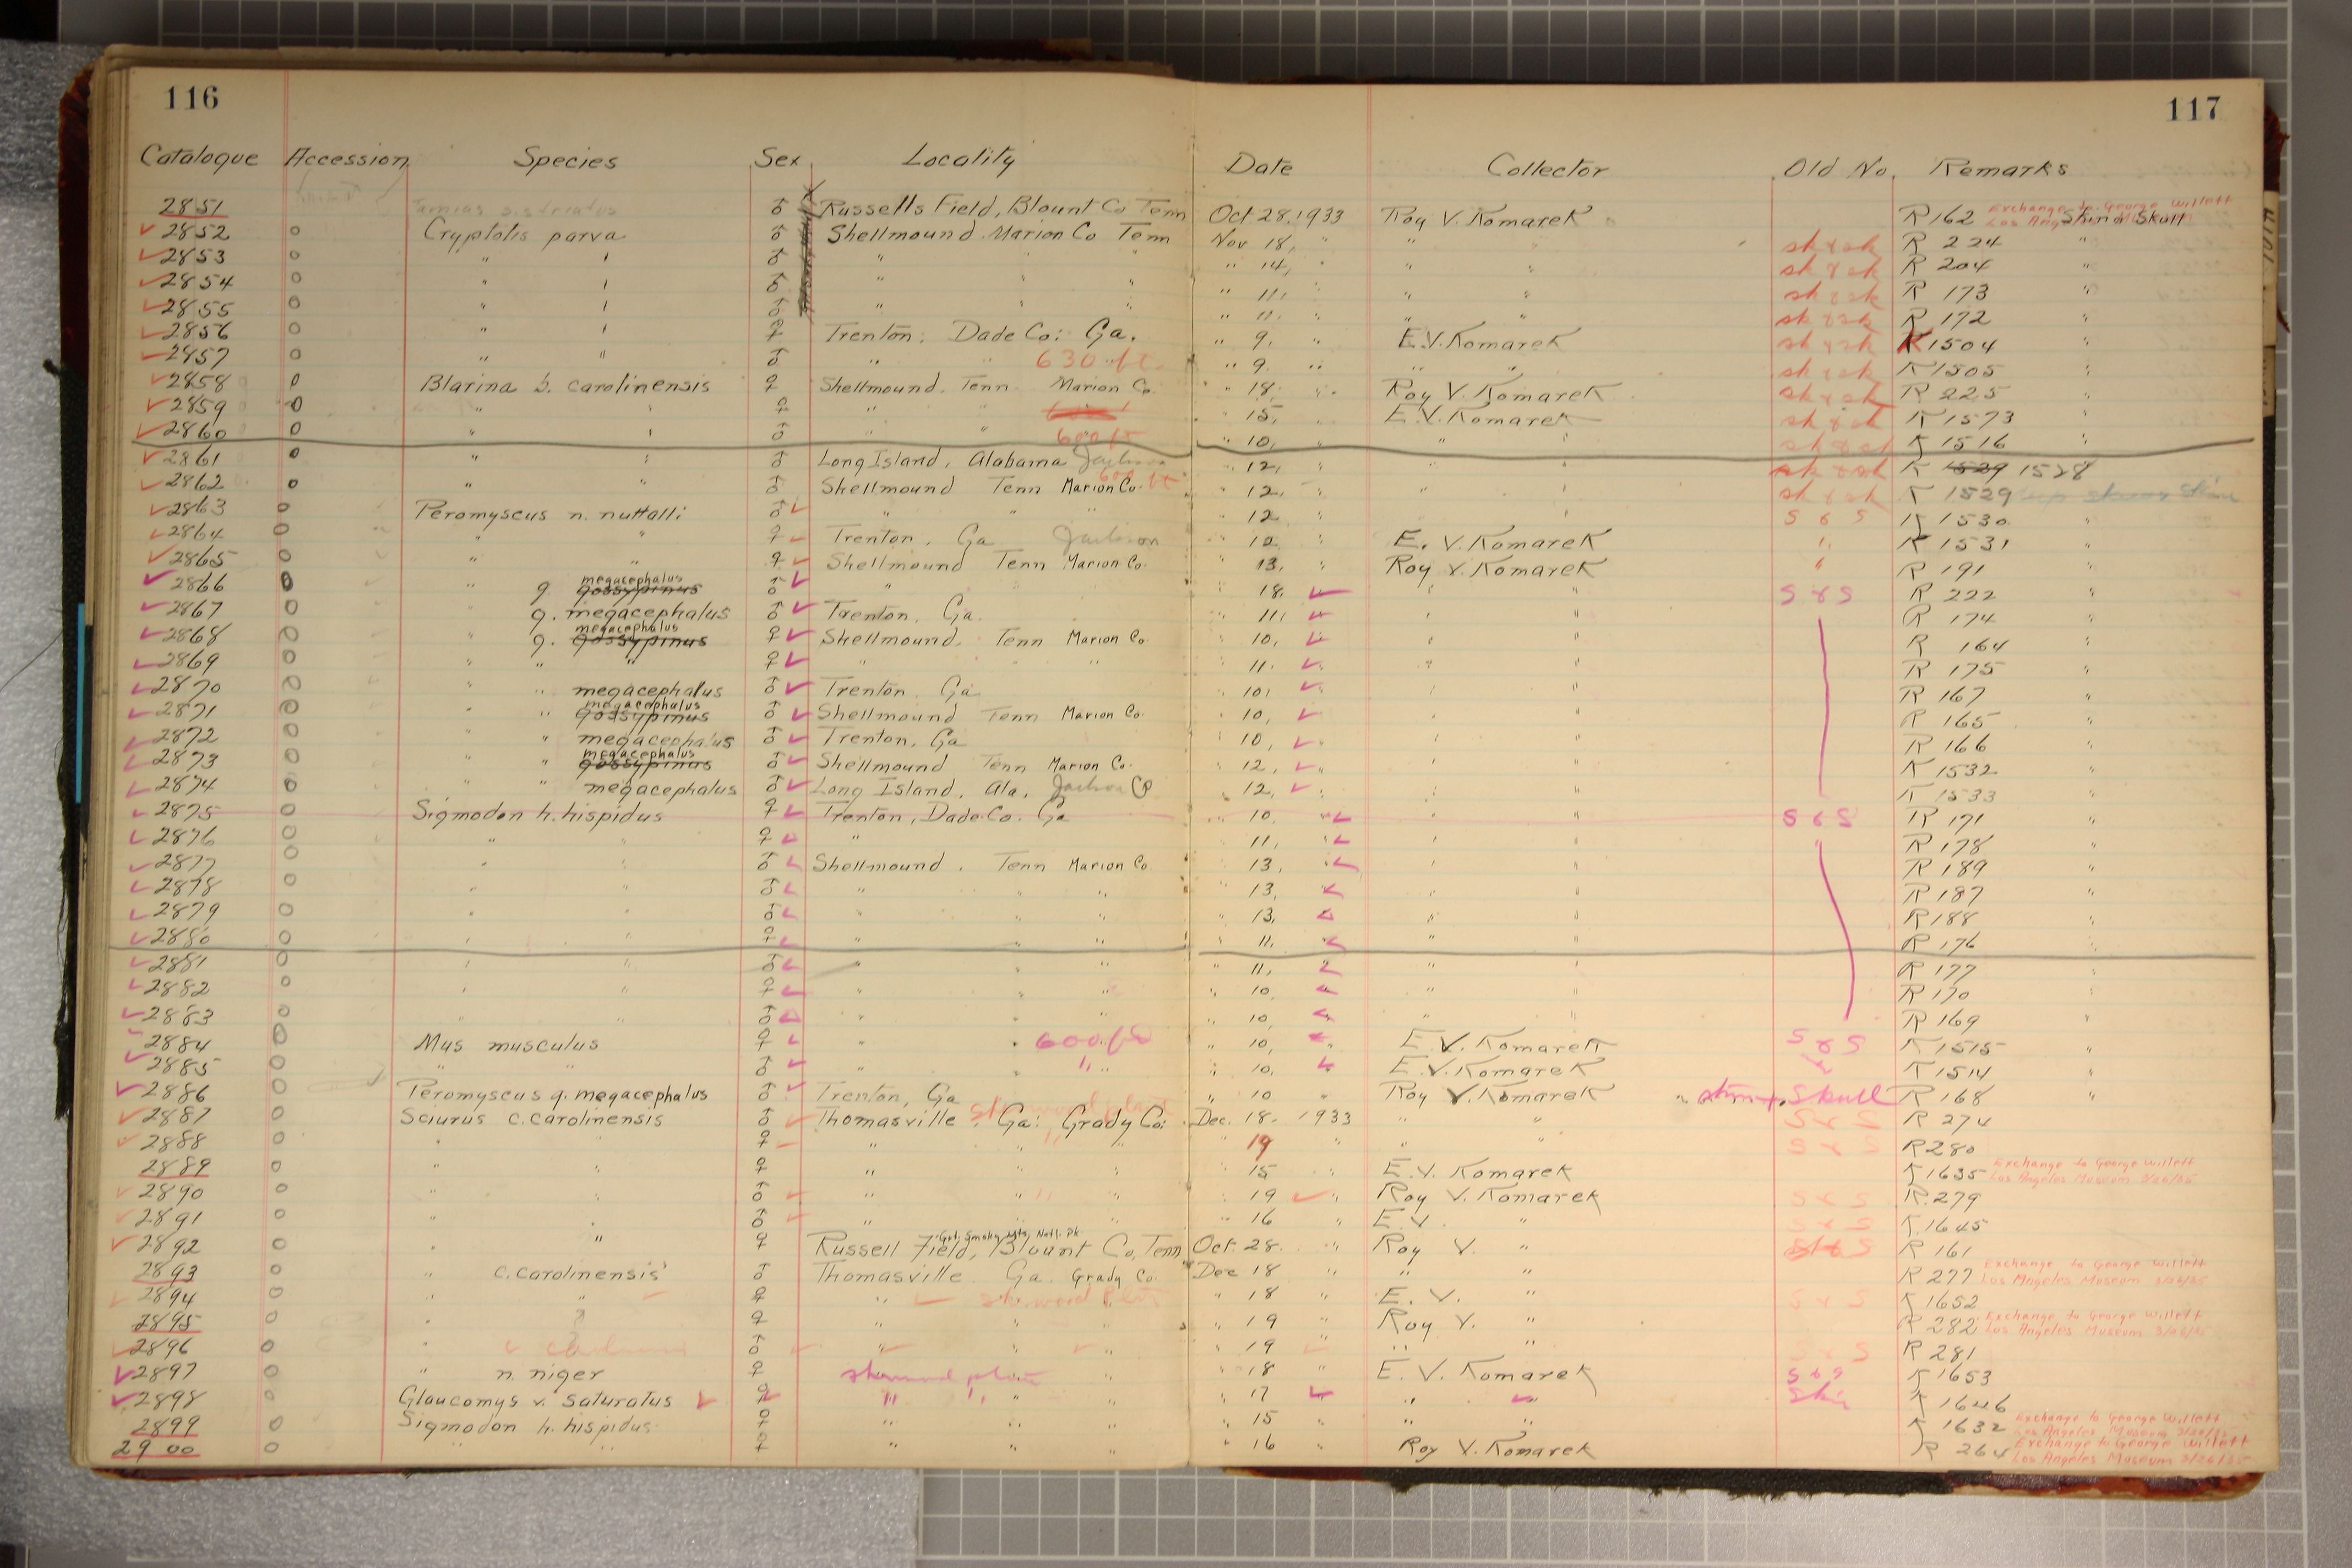 116
117
Catalogue Accession Species Sex Locality Date Collector Old No. Remarks
2851 Tamias s. striatus ♂ Russells Field, Blount Co Tenn Oct 28, 1933 Roy V. Komarek R 162 Skin & Skull Exchange to George Willett
2852 0 Cryptotis parva ♂ Shellmound Marion Co Tenn Nov 18, " " " sk & sk R 224 "
2853 0 " " ♂ " " " " 14, " " " sk & sk R 204 "
2854 0 " " ♂ " " " " 11, " " " sk & sk R 173 "
2855 0 " " ♂ " " " " 11, " " " sk & sk R 172 "
2856 0 " " ♀ Trenton: Dade Co: Ga. " 9, " E.V. Komarek sk & sk K 1504 "
2857 0 " " ♂ " " 630 ft. " 9 " " " sk & sk K 1505 "
2858 0 Blarina b. carolinensis ♀ Shellmound. Tenn. Marion Co. " 18, " Roy V. Komarek sk & sk R 225 "
2859 0 " " ♀ " " " 15, " E.V. Komarek sk & sk K 1573 "
2860 0 " " ♂ " " 600 ft " 10, " " " sk & sk K 1516 "
2861 0 " " ♂ Long Island, Alabama Jackson " 12, " " " sk & sk K 1529 1528 "
2862 0 " " ♂ Shellmound Tenn Marion Co. 600 ft " 12, " " " sk & sk K 1529
2863 0 Peromyscus n. nuttalli ♂ " " " " 12 " " S & S K 1530 "
2864 0 " " ♀ Trenton, Ga Jackson " 12 " E. V. Komarek " K 1531 "
2865 0 " " ♀ Shellmound Tenn Marion Co. " 13, " Roy V. Komarek " R 191 "
2866 0 " g. gossypinus megacephalus ♂ " " " 18, " " S & S R 222 "
2867 0 g. megacephalus ♂ Trenton, Ga. " 11, " " R 174 "
2868 0 " g. gossypinus megacephalus ♀ Shellmound. Tenn Marion Co. " 10, " " R 164 "
2869 0 " " " ♀ " " " " 11. " " R 175 "
2870 0 " " megacephalus ♂ Trenton. Ga " 10, " " R 167 "
2871 0 " " gossypinus megacephalus ♂ Shellmound Tenn Marion Co. " 10, " " R 165 "
2872 0 " megacephalus ♂ Trenton, Ga " 10, " " R 166 "
2873 0 " " gossypinus megacephalus ♂ Shellmound Tenn Marion Co. " 12, " " K 1532 "
2874 0 " " megacephalus ♂ Long Island, Ala. Jackson Co " 12, " " K 1533 "
2875 0 Sigmodon h. hispidus ♀ Trenton, Dade Co. Ga " 10, " " S & S R 171 "
2876 0 " " ♀ " " 11, " " R 178 "
2877 0 " " ♂ Shellmound. Tenn Marion Co " 13, " " R 189 "
2878 0 " " ♂ " " " " 13, " " R 187 "
2879 0 " " ♂ " " " " 13, " " R 188 "
2880 0 " " ♀ " " " " 11, " " R 176 "
2881 0 " " ♂ " " " " 11, " " R 177 "
2882 0 " " ♀ " " " " 10, " " R 170 "
2883 0 " " ♂ " " " " 10, " " R 169 "
2884 0 Mus musculus ♀ " " 600 ft " 10, " E. V. Komarek S & S K 1515 "
2885 0 " " ♂ " " " " 10, " E.V. Komarek " K 1514 "
2886 0 Peromyscus g. megacephalus ♂ Trenton, Ga " 10 " Roy V. Komarek Skull R 168 "
2887 0 Sciurus c. carolinensis ♂ Thomasville. Ga: Grady Co: Sherwood plant Dec. 18, 1933 " " S & S R 274
2888 0 " " ♀ " " " " 19 " " " S & S R 280
2889 0 " " ♀ " " " " 15 " E.V. Komarek K 1635 Exchange to George Willett Los Angeles Museum 3/26/35
2890 0 " " ♂ " " " " 19 " Roy V. Komarek S & S R 279
2891 0 " " ♂ " " " " 16 " E.V. " S & S K 1645
2892 0 " " ♀ Russell Field, Blount Co, Tenn Grt. Smoky Mts. Natl. Pk. Oct. 28. " Roy V. " S & S R 161
2893 0 " c. carolinensis ♂ Thomasville Ga. Grady Co. Dec 18 " " " R 277 Exchange to George Willett Los Angeles Museum 3/26/35
2894 0 " " ♀ " Sherwood plant " " 18 " E. V. " S & S K 1652
2895 0 " " ♀ " " " " 19 " Roy V. " R 282 Exchange to George Willett Los Angeles Museum 3/26/35
2896 0 " ♂ " " " " 19 " " " S & S R 281
2897 0 " n. niger ♀ Sherwood plant " 18 " E. V. Komarek S & S K 1653
2898 0 Glaucomys v. saturatus ♀ " " " " 17 " " Skin K 1646
2899 0 Sigmodon h. hispidus ♀ " " " " 15 " " " K 1632 Exchange to George Willett Los Angeles Museum 3/26/35
2900 0 " " ♀ " " " " 16 " Roy V. Komarek R 264 Exchange to George Willett Los Angeles Museum 3/26/35